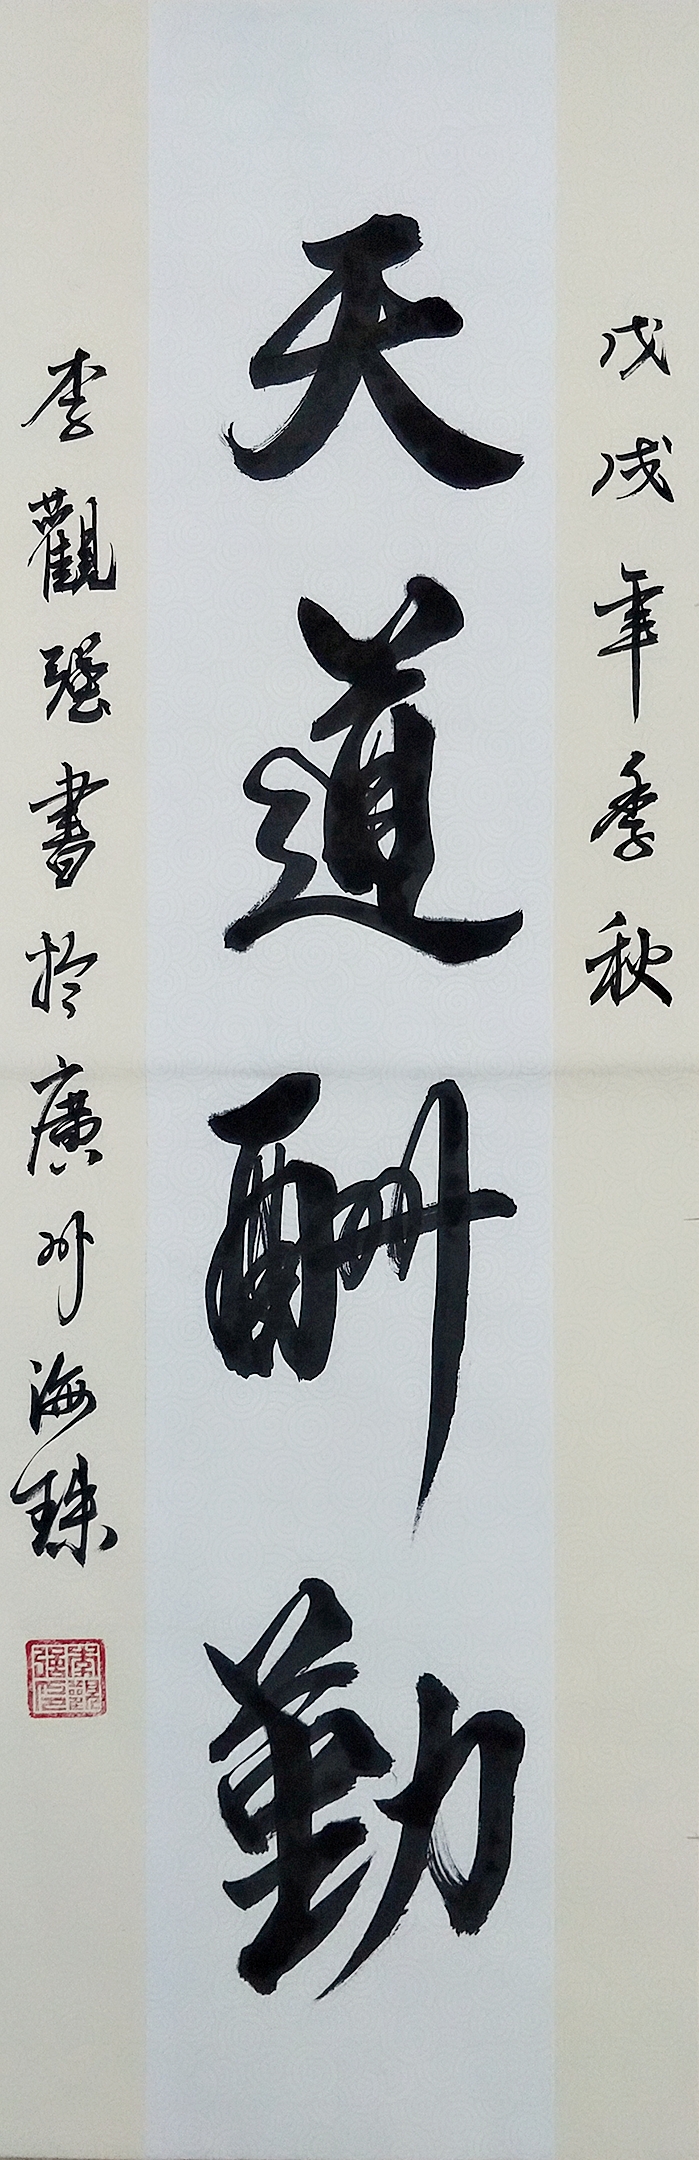 戊戌年季秋
天道酬勤
李觀强書於廣州海珠